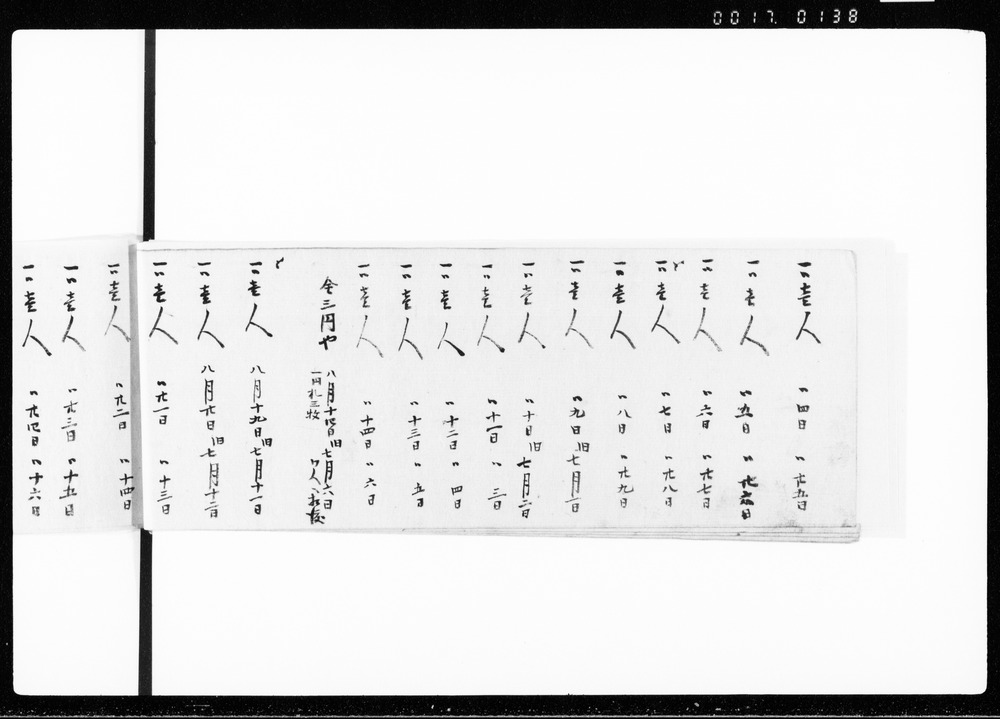 0017 0138
一〃壱人 〃四日 〃廿五日
一〃壱人 〃五日 〃廿六日
一〃壱人 〃六日 〃廿七日
一〃壱人 〃七日 〃廿八日
一〃壱人 〃八日 〃廿九日
一〃壱人 〃九日旧七月一日
一〃壱人 〃十日旧七月二日
一〃壱人 〃十一日 〃三日
一〃壱人 〃十二日 〃四日
一〃壱人 〃十三日 〃五日
一〃壱人 〃十四日 〃六日
金三円や 八月十四日旧七月六日
一円札三枚
一〃壱人 八月十九日旧七月十一日
一〃壱人 八月廿日旧七月十二日
一〃壱人 〃廿一日 〃十三日
一〃壱人 〃廿二日 〃十四日
一〃壱人 〃廿三日 〃十五日
一〃壱人 〃廿四日 〃十六日